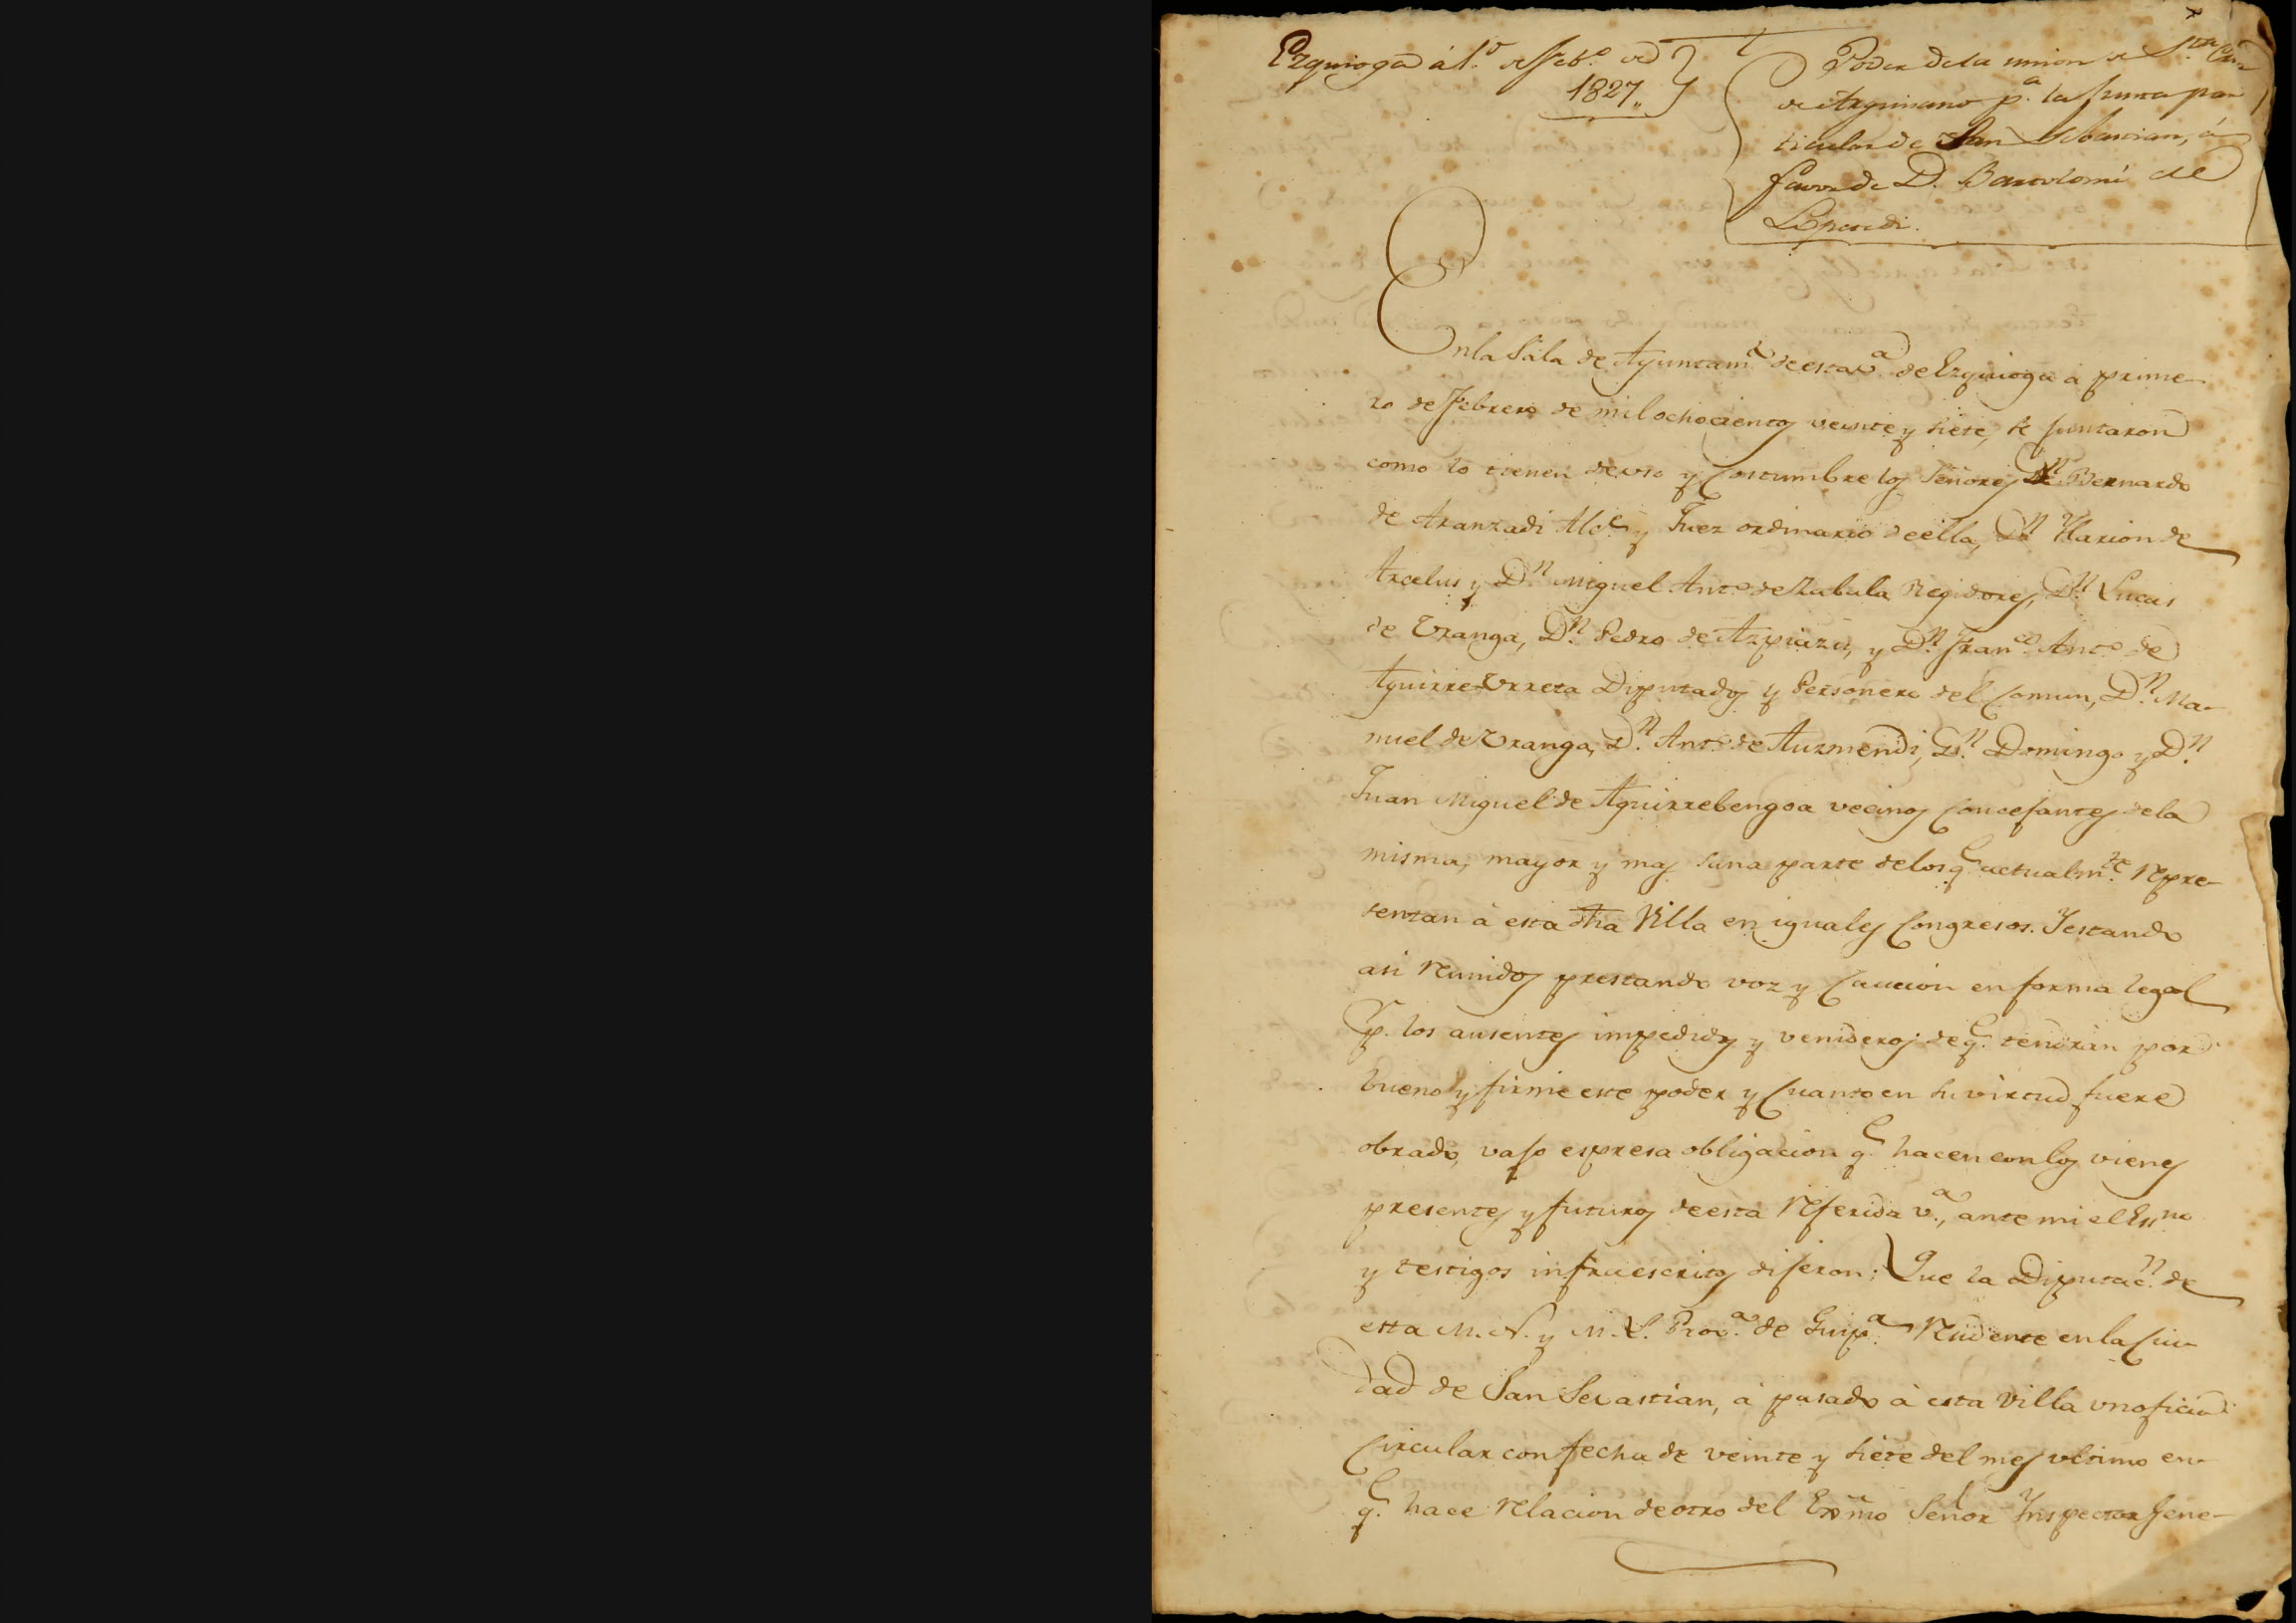 Ezquioga á 1.º de Feb.º de
1827,,
Poder de la union de S.ta Cruz
de Arguisano p.a la Junta par
ticular de San Sebastian, á
favor de D. Bartolomé de
Lopeedi.
En la Sala de Ayuntam.to de esta v.a de Ezquioga a prime-
ro de Febrero de mil ochocientos veinte y siete, se juntaron
como lo tienen de vso y Costumbre los Señores D.n Bernardo
de Aranzadi Alc.e y Juez ordinario de ella, D.n Ylarion de
Arcelus y D.n Miguel Ant.o de Zabala Regidores, D.n Lucas
de Vranga, D.n Pedro de Azpiazu, y D.n Fran.co Ant.o de
Aguirre-Vrreta Diputados y Personero del Comun, D.n Ma-
nuel de Vranga, D.n Ant.o de Auzmendi, D.n Domingo y D.n
Juan Miguel de Aguirrebengoa vecinos Concejantes de la
misma, mayor y mas sana parte de los q.e actualm.te repre-
sentan á esta dha Villa en iguales Congresos. Y estando
asi reunidos prestando voz y Caucion en forma legal
p.r los ausentes impedidos y venideros de q.e tendrán por
bueno y firme este poder y Cuanto en su virtud fuere
obrado, vajo espresa obligacion q.e hacen con los vienes
presentes y futuros de esta referida v.a, ante mi el Ess.no
y testigos infraescritos dijeron; Que la Diputac.n de
esta M. N. y M. L. Prov.a de Guip.a residente en la Ciu-
dad de San Sevastian, á pasado á esta Villa vn oficio
Circular con fecha de veinte y siete del mes vltimo en
q.e hace relacion de otro del Exmo Señor Ynspector Gene-